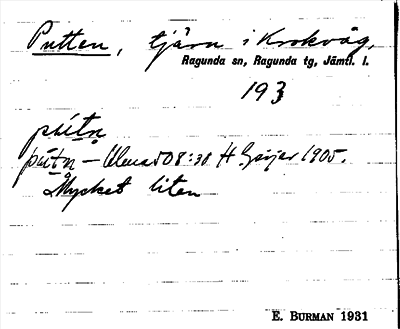 Putten, tjärn i Krokvåg,
Ragunda sn, Ragunda tg, Jämtl. l.
193
pútn̥
pútn̥ – Ulma 508:38 H. Geijer 1905.
Mycket liten
E. BURMAN 1931